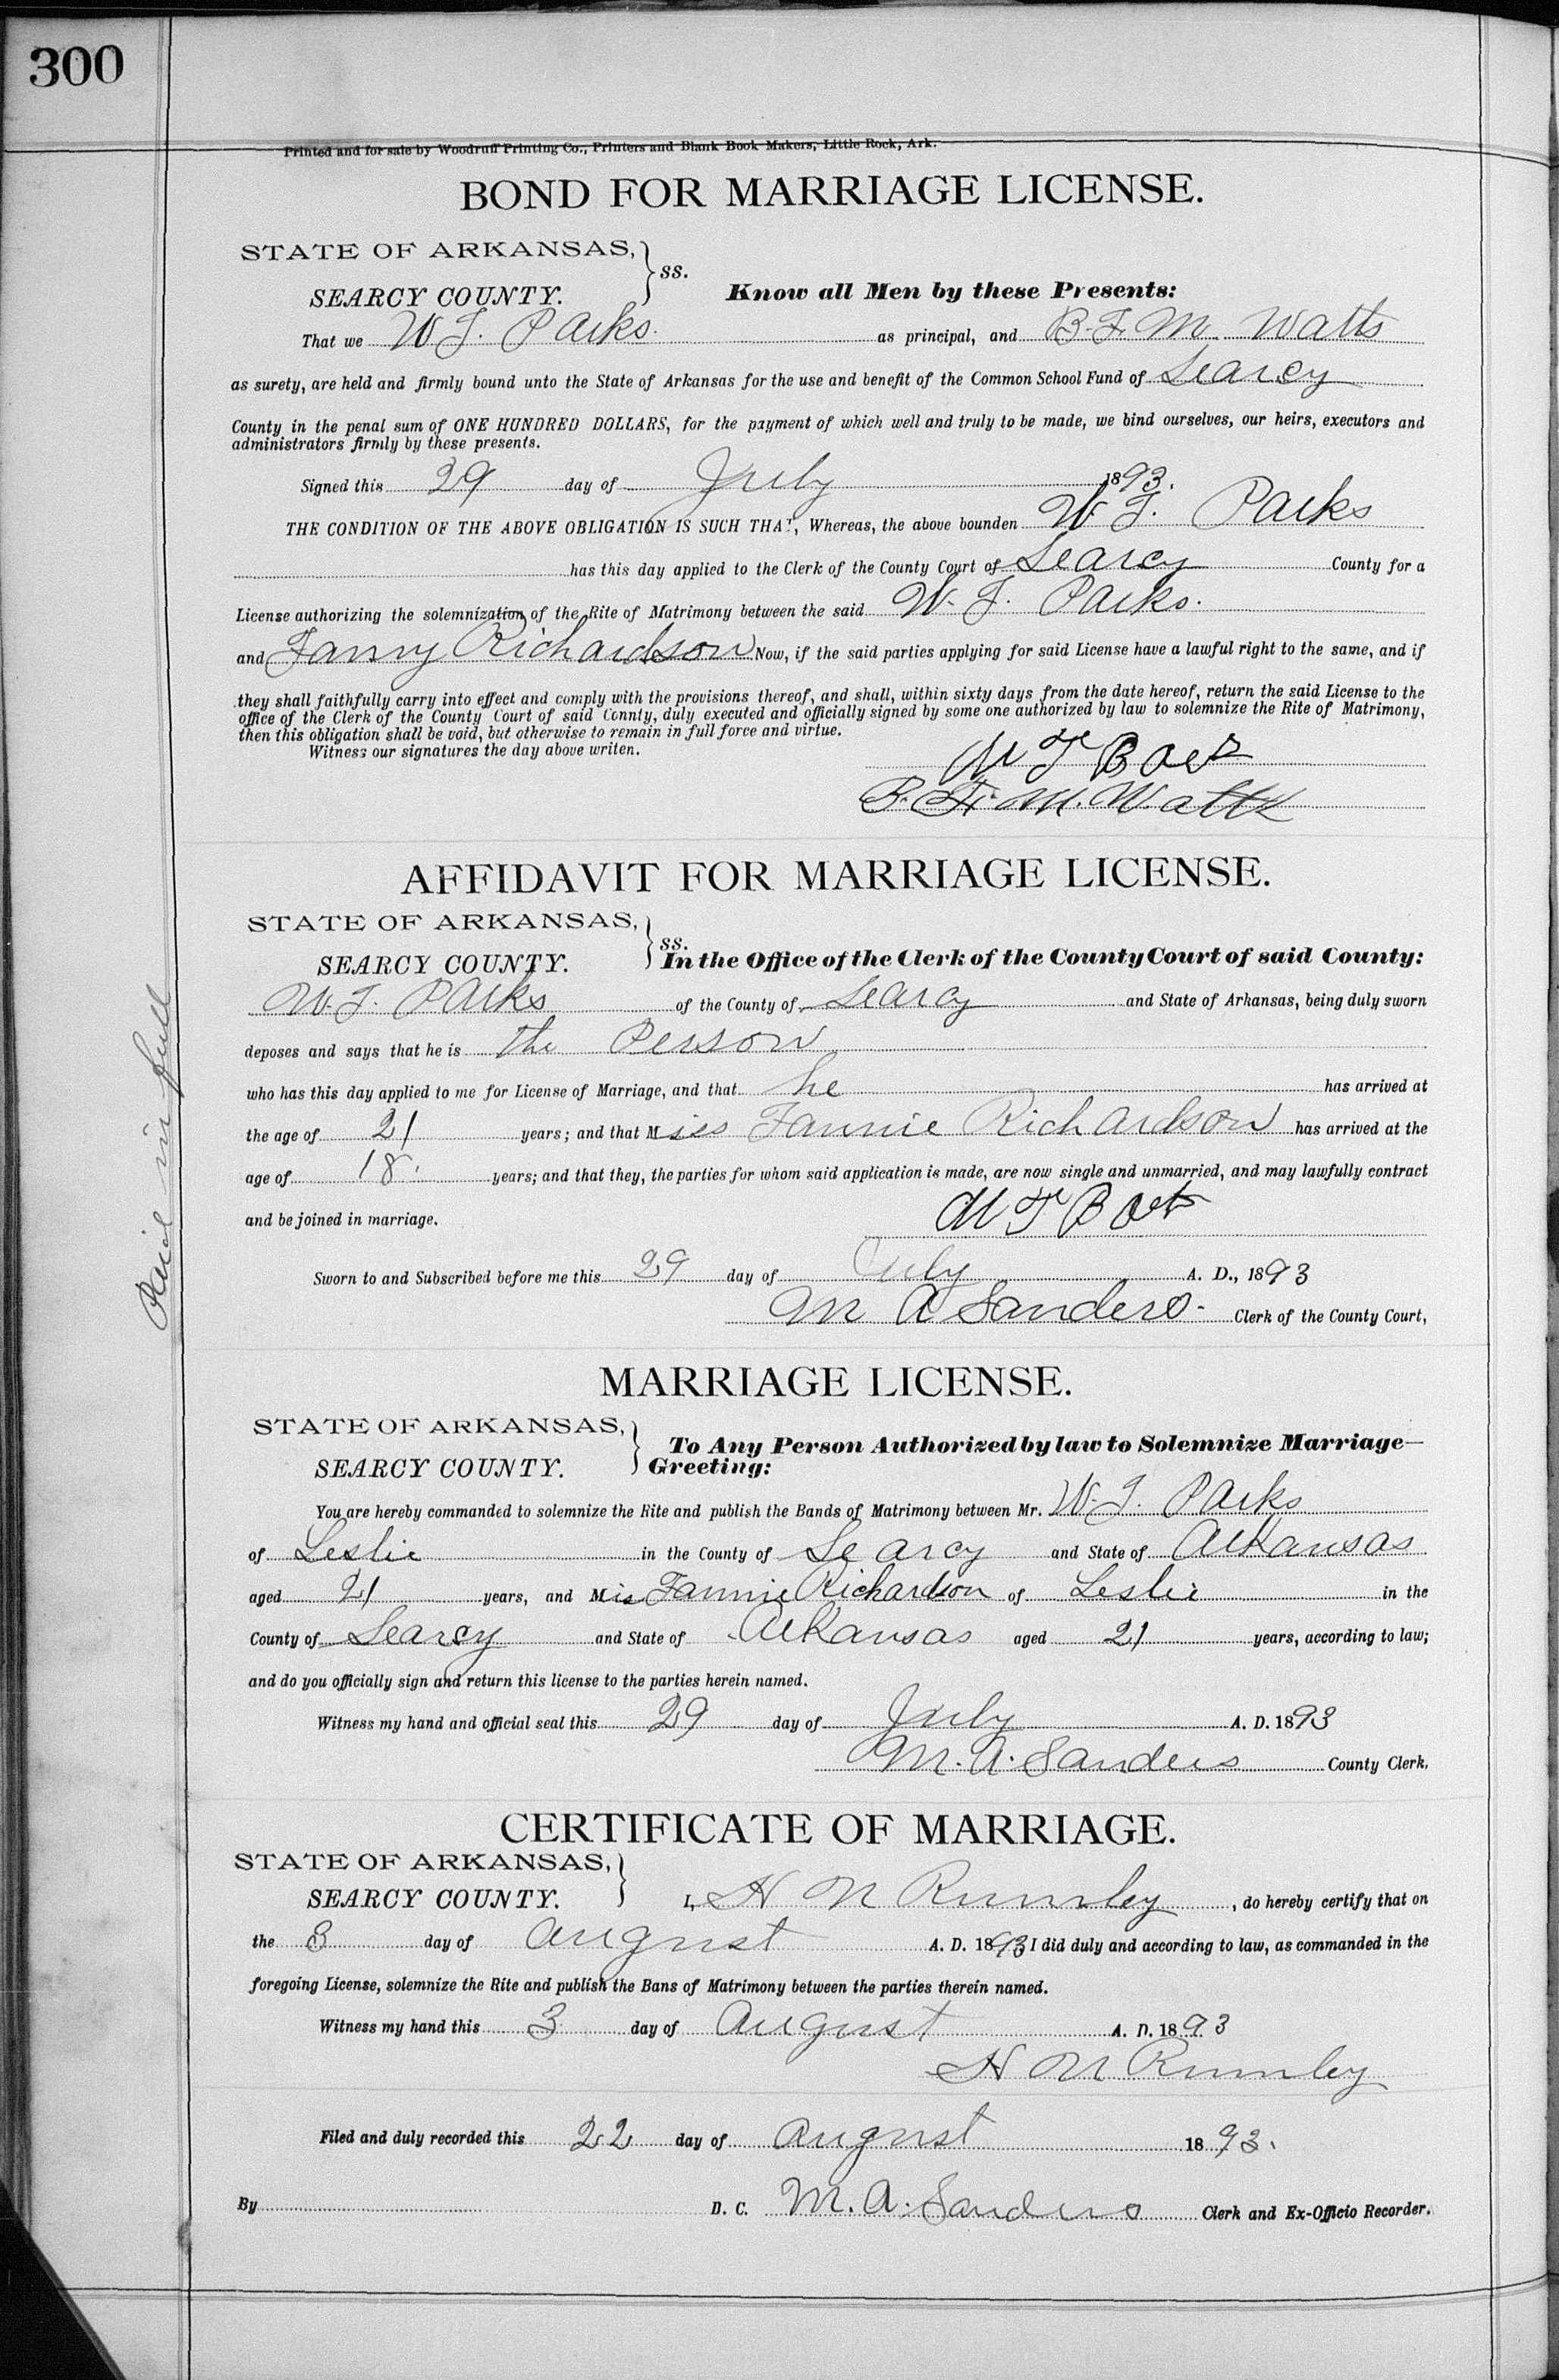 300
Printed and for sale by Woodruff Printing Co., Printers and Blank Book Makers, Little Rock, Ark.
BOND FOR MARRIAGE LICENSE.
STATE OF ARKANSAS,
SEARCY COUNTY. } ss.
Know all Men by these Presents:
That we W. T. Parks. as principal, and B. F. M. Watts
as surety, are held and firmly bound unto the State of Arkansas for the use and benefit of the Common School Fund of Searcy
County in the penal sum of ONE HUNDRED DOLLARS, for the payment of which well and truly to be made, we bind ourselves, our heirs, executors and
administrators firmly by these presents.
Signed this 29 day of July 1893.
THE CONDITION OF THE ABOVE OBLIGATION IS SUCH THAT, Whereas, the above bounden W. T. Parks
has this day applied to the Clerk of the County Court of Searcy County for a
License authorizing the solemnization of the Rite of Matrimony between the said W. T. Parks.
and Fanny Richardson Now, if the said parties applying for said License have a lawful right to the same, and if
they shall faithfully carry into effect and comply with the provisions thereof, and shall, within sixty days from the date hereof, return the said License to the
office of the Clerk of the County Court of said Connty, duly executed and officially signed by some one authorized by law to solemnize the Rite of Matrimony,
then this obligation shall be void, but otherwise to remain in full force and virtue.
Witness our signatures the day above writen.
W T
B. F. M. Watts
AFFIDAVIT FOR MARRIAGE LICENSE.
STATE OF ARKANSAS,
SEARCY COUNTY. } ss.
In the Office of the Clerk of the County Court of said County:
W. T. Parks of the County of Searcy and State of Arkansas, being duly sworn
deposes and says that he is the Person
who has this day applied to me for License of Marriage, and that he has arrived at
the age of 21 years; and that Miss Fannie Richardson has arrived at the
age of 18. years; and that they, the parties for whom said application is made, are now single and unmarried, and may lawfully contract
and be joined in marriage.
W T
Sworn to and Subscribed before me this 29 day of July A. D., 1893
M A Sanders - Clerk of the County Court,
Paid in full
MARRIAGE LICENSE.
STATE OF ARKANSAS,
SEARCY COUNTY. }
To Any Person Authorized by law to Solemnize Marriage—
Greeting:
You are hereby commanded to solemnize the Rite and publish the Bands of Matrimony between Mr. W. T. Parks
of Leslie in the County of Searcy and State of Arkansas
aged 21 years, and Mis Fannie Richardson of Leslie in the
County of Searcy and State of Arkansas aged 21 years, according to law;
and do you officially sign and return this license to the parties herein named.
Witness my hand and official seal this 29 day of July A. D. 1893
M. A. Sanders County Clerk.
CERTIFICATE OF MARRIAGE.
STATE OF ARKANSAS,
SEARCY COUNTY. }
I, H M Rumley, do hereby certify that on
the 3 day of August A. D. 1893 I did duly and according to law, as commanded in the
foregoing License, solemnize the Rite and publish the Bans of Matrimony between the parties therein named.
Witness my hand this 3 day of August A. D. 1893
H M Rumley
Filed and duly recorded this 22 day of August 1893.
By D. C. M. A. Sanders Clerk and Ex-Officio Recorder.